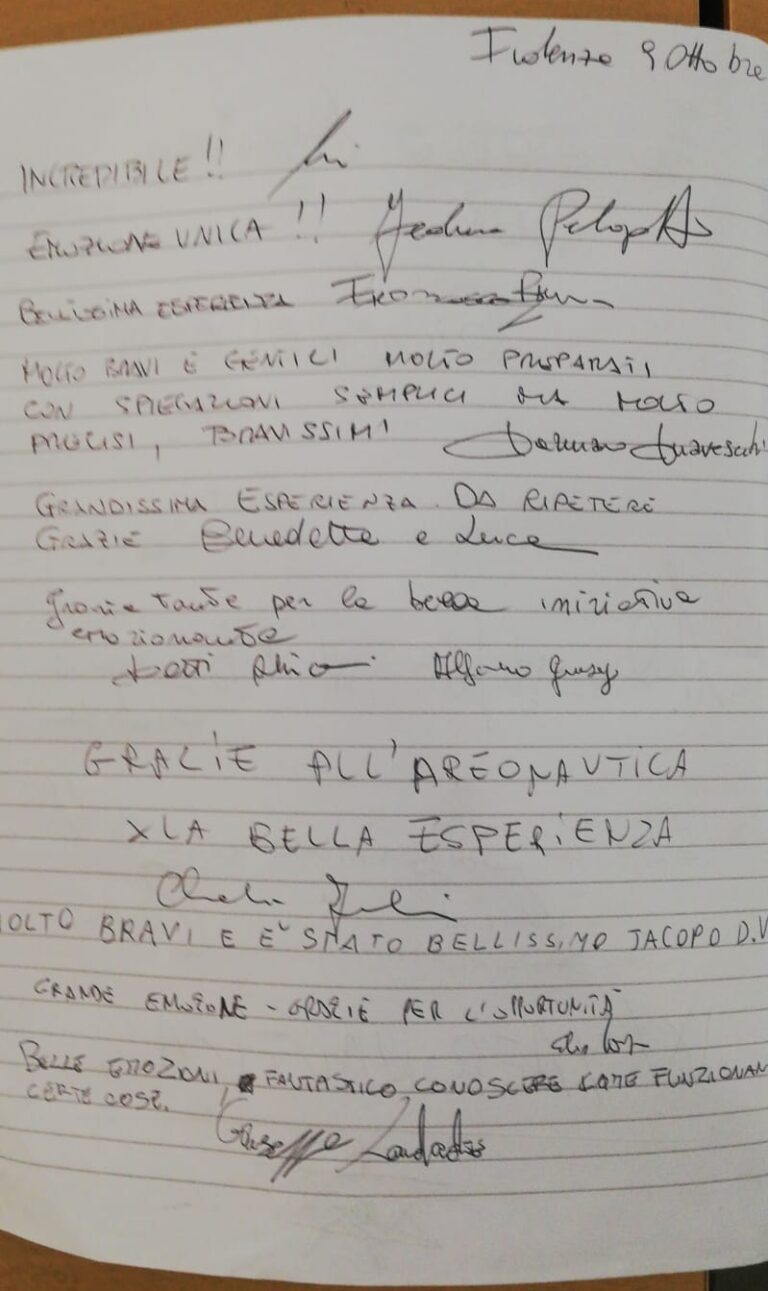 9 Ottobre
INCREDIBILE!!
EMOZIONE UNICA!!
BELLISSIMA ESPERIENZA
MOLTO BRAVI E GENTILI MOLTO PREPARATI,
CON SPIEGAZIONI SEMPLICI MA MOLTO
PRECISI, BRAVISSIMI
GRANDISSIMA ESPERIENZA DA RIPETERE
GRAZIE Benedetta e Luca
Grazie tante per la bella iniziativa
emozionante
Alfano Giusy
GRAZIE ALL'AREONAUTICA
XLA BELLA ESPERIENZA
MOLTO BRAVI E E' STATO BELLISSIMO JACOPO D.V
GRANDE EMOZIONE - GRAZIE PER L'OPPORTUNITÀ
BELLE EMOZIONI, FANTASTICO CONOSCERE COME FUNZIONAN
CERTE COSE.
Giuseppe